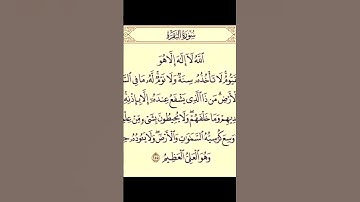 سُورَةُ البَقَرَةِ
ٱللَّهُ لَآ إِلَٰهَ إِلَّا هُوَ
قَيُّومُ لَا تَأْخُذُهُۥ سِنَةٌ وَلَا نَوْمٌ لَّهُۥ مَا فِي ٱلسَّ
ٱلْأَرْضِ مَن ذَا ٱلَّذِي يَشْفَعُ عِندَهُۥٓ إِلَّا بِإِذْنِهِۦ
دِيهِمْ وَمَا خَلْفَهُمْ وَلَا يُحِيطُونَ بِشَيْءٍ مِّنْ عِلْ
وَسِعَ كُرْسِيُّهُ ٱلسَّمَٰوَٰتِ وَٱلْأَرْضَ وَلَا يَـُٔودُهُۥ حِ
وَهُوَ ٱلْعَلِيُّ ٱلْعَظِيمُ ٢٥٥